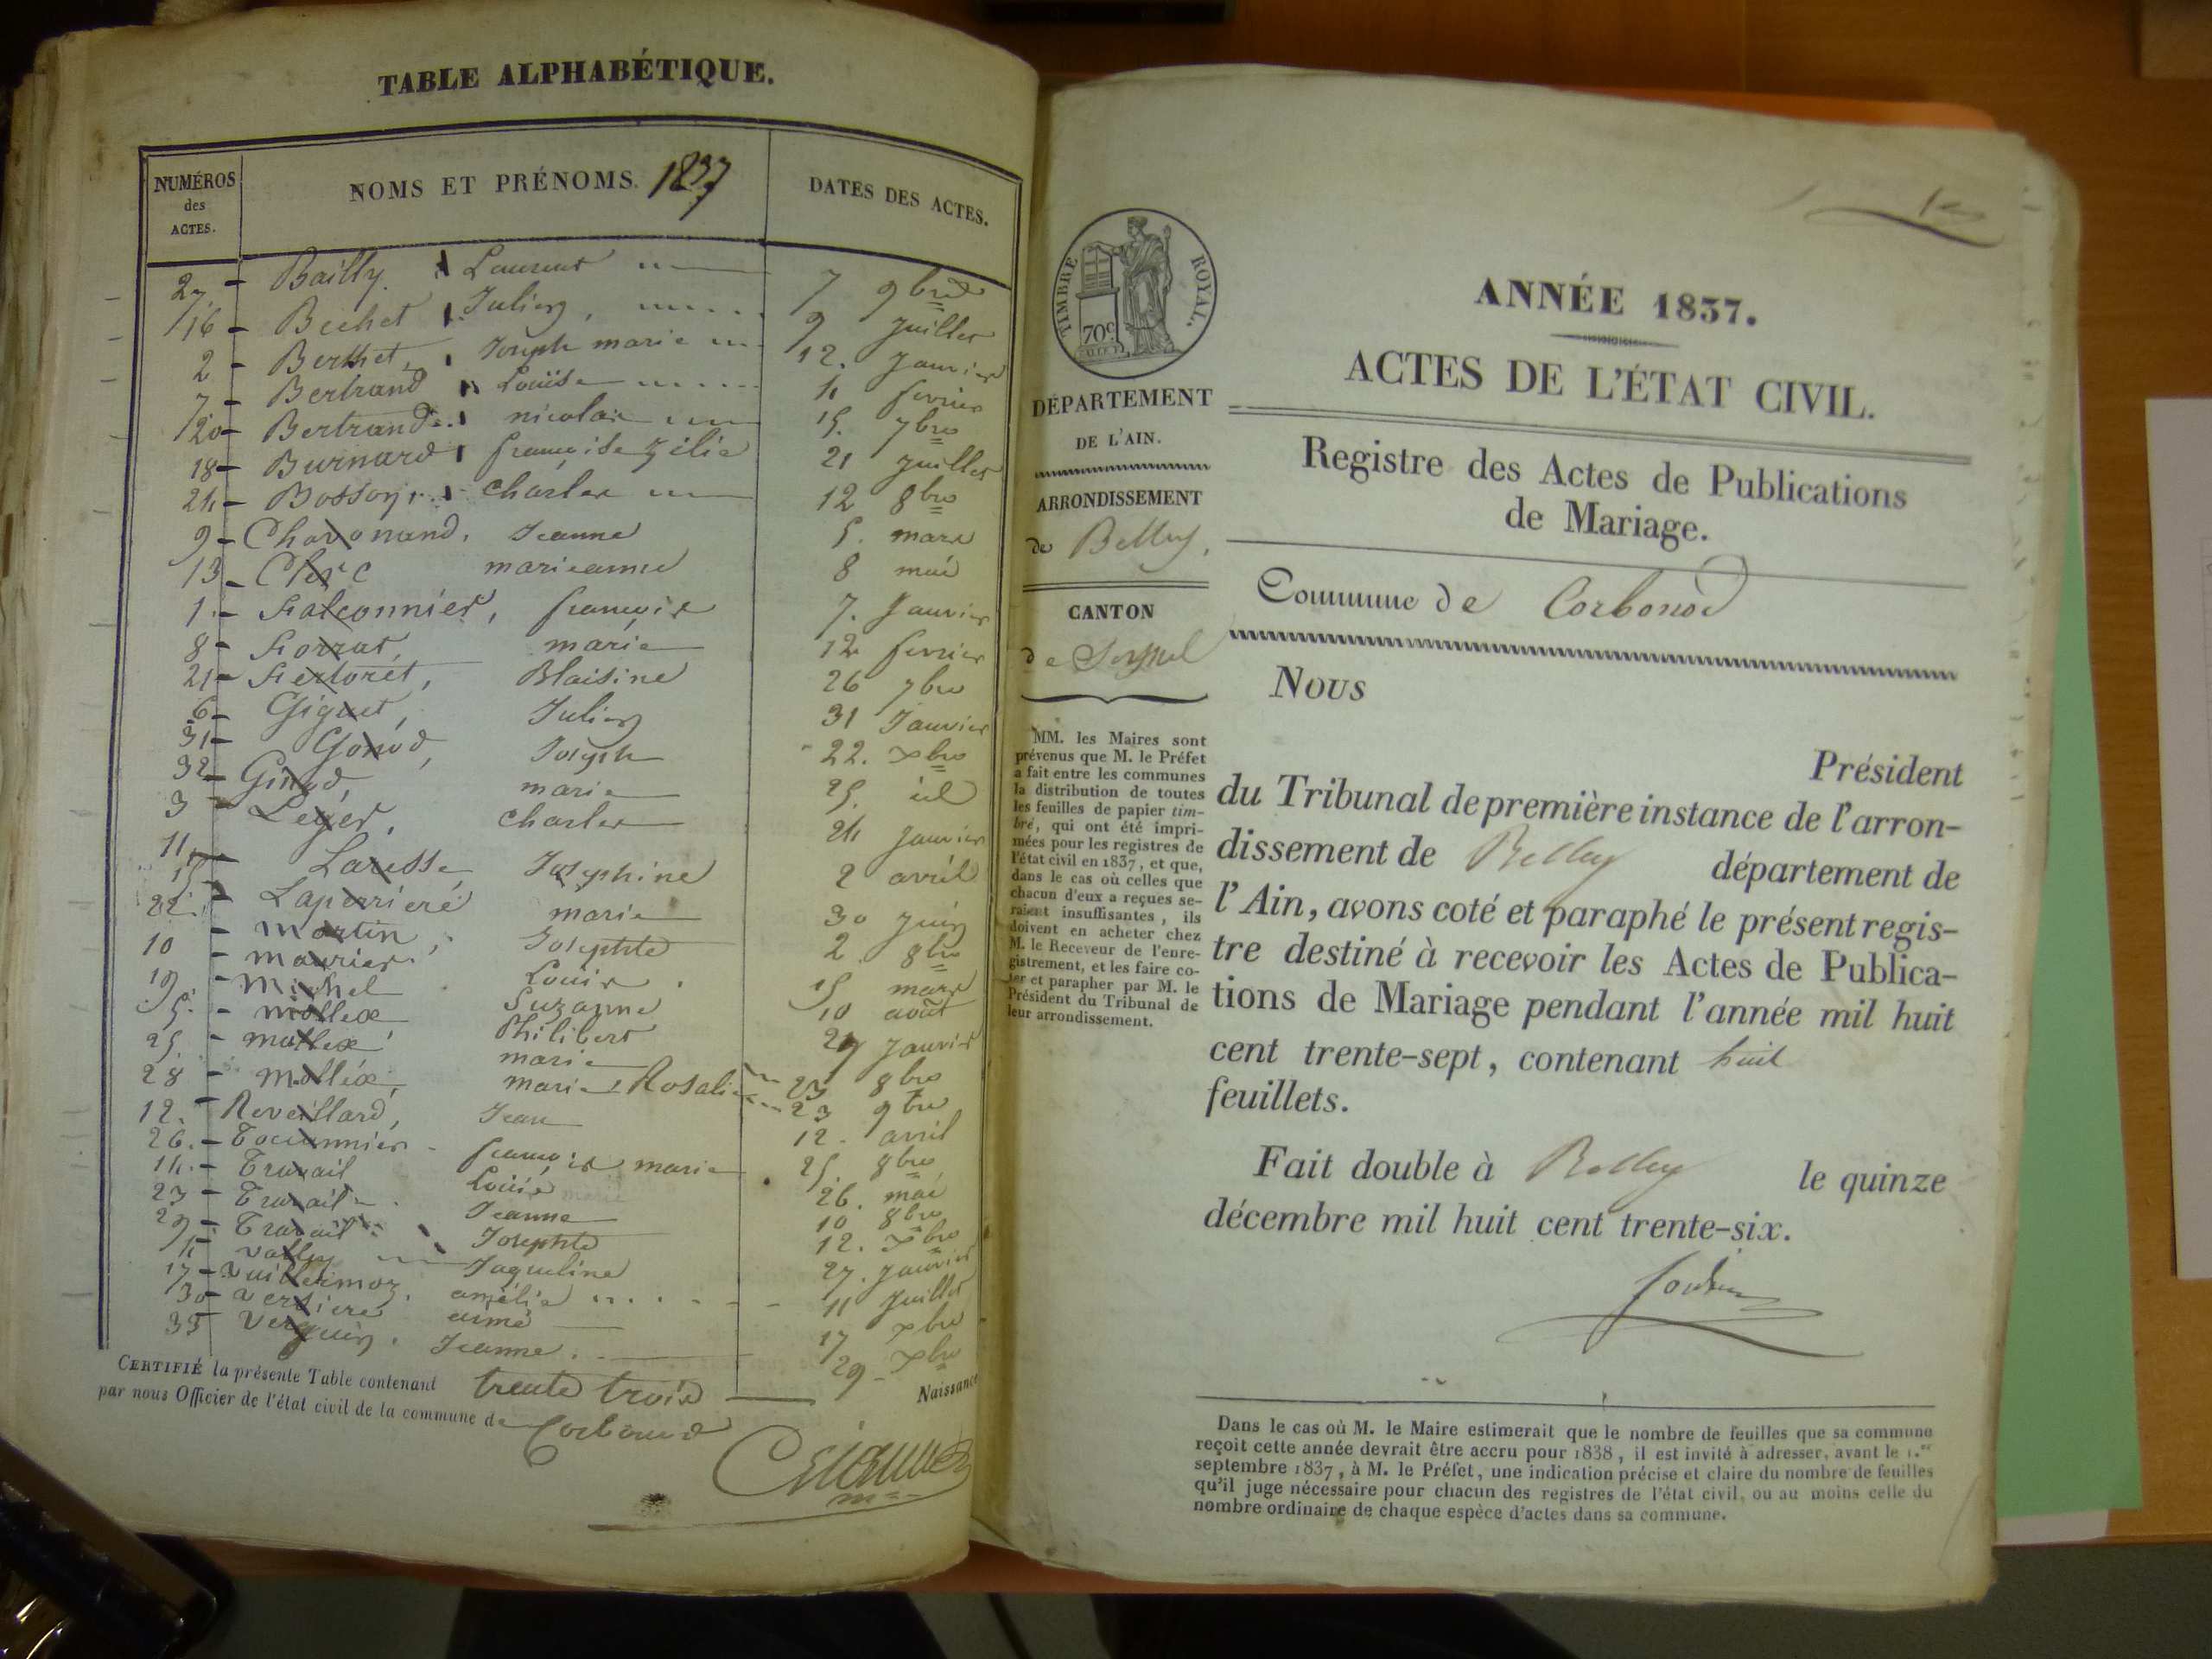 TABLE ALPHABÉTIQUE.
NUMÉROS
des
ACTES.
NOMS ET PRÉNOMS. 1837
DATES DES ACTES.
27 - Bailly. Laurent 7 9bre
16 - Bechet Julien, 9 Juillet
2 - Berthet, Joseph marie 12. Janvier
7 - Bertrand Louise 11 fevrier
20 - Bertrand nicolas 15. 7bre
18 - Burnard françoise Zélie 21 Juillet
24 - Bossoy, charles 12 8bre
9 - Chavonand, Jeanne 5. mars
13 - Clerc marieanne 8 mai
1 - Falconnier, françois 7. Janvier
8 - Forrat, marie 12 fevrier
21 - Fertoret, Blaisine 26 7bre
6 - Giguet, Julien 31 Janvier
31 - Gonod, Joseph 22. Xbre
32 - Ginod, marie 25. id
3 - Leger, charles 24 Janvier
11 - Laresse Josephine 2 avril
15 - Laperriere marie 30 Juin
22 - Martin, Josephte 2 8bre
10 - maurier. Louis 15 mars
19 - Michel Suzanne 10 août
5. - mollex Philibert 29 Janvier
25 - mollex marie 23 8bre
28 - mollex, marie Rosalie 23 9bre
12. Reveillard, Jean 12. avril
26. - Tocannier françois marie 25. 8bre
14. - Travail Louise 26. mai
23 - Travail Jeanne 10 8bre
29 - Travail Josephte 12. Xbre
4 - vally Jaqueline 27. Janvier
17 - Vuillermoz. amélie 11 Juillet
30 - Versiere aimé 17 Xbre
33 Verguin. Jeanne. 29 - Xbre
CERTIFIÉ la présente Table contenant trente trois Naissance
par nous Officier de l'état civil de la commune de Corbonod
1er
TIMBRE ROYAL.
70c
ANNÉE 1837.
ACTES DE L'ÉTAT CIVIL.
DÉPARTEMENT
DE L'AIN.
ARRONDISSEMENT
de Belley.
CANTON
de Seyssel
MM. les Maires sont
prévenus que M. le Préfet
a fait entre les communes
la distribution de toutes
les feuilles de papier tim-
bré, qui ont été impri-
mées pour les registres de
l'état civil en 1837, et que,
dans le cas où celles que
chacun d'eux a reçues se-
raient insuffisantes, ils
doivent en acheter chez
M. le Receveur de l'enre-
gistrement, et les faire co-
ter et parapher par M. le
Président du Tribunal de
leur arrondissement.
Registre des Actes de Publications
de Mariage.
Commune de Corbonod
NOUS
Président
du Tribunal de première instance de l'arron-
dissement de Belley département de
l'Ain, avons coté et paraphé le présent regis-
tre destiné à recevoir les Actes de Publica-
tions de Mariage pendant l'année mil huit
cent trente-sept, contenant huit
feuillets.
Fait double à Belley le quinze
décembre mil huit cent trente-six.
Dans le cas où M. le Maire estimerait que le nombre de feuilles que sa commune
reçoit cette année devrait être accru pour 1838, il est invité à adresser, avant le 1.er
septembre 1837, à M. le Préfet, une indication précise et claire du nombre de feuilles
qu'il juge nécessaire pour chacun des registres de l'état civil, ou au moins celle du
nombre ordinaire de chaque espèce d'actes dans sa commune.